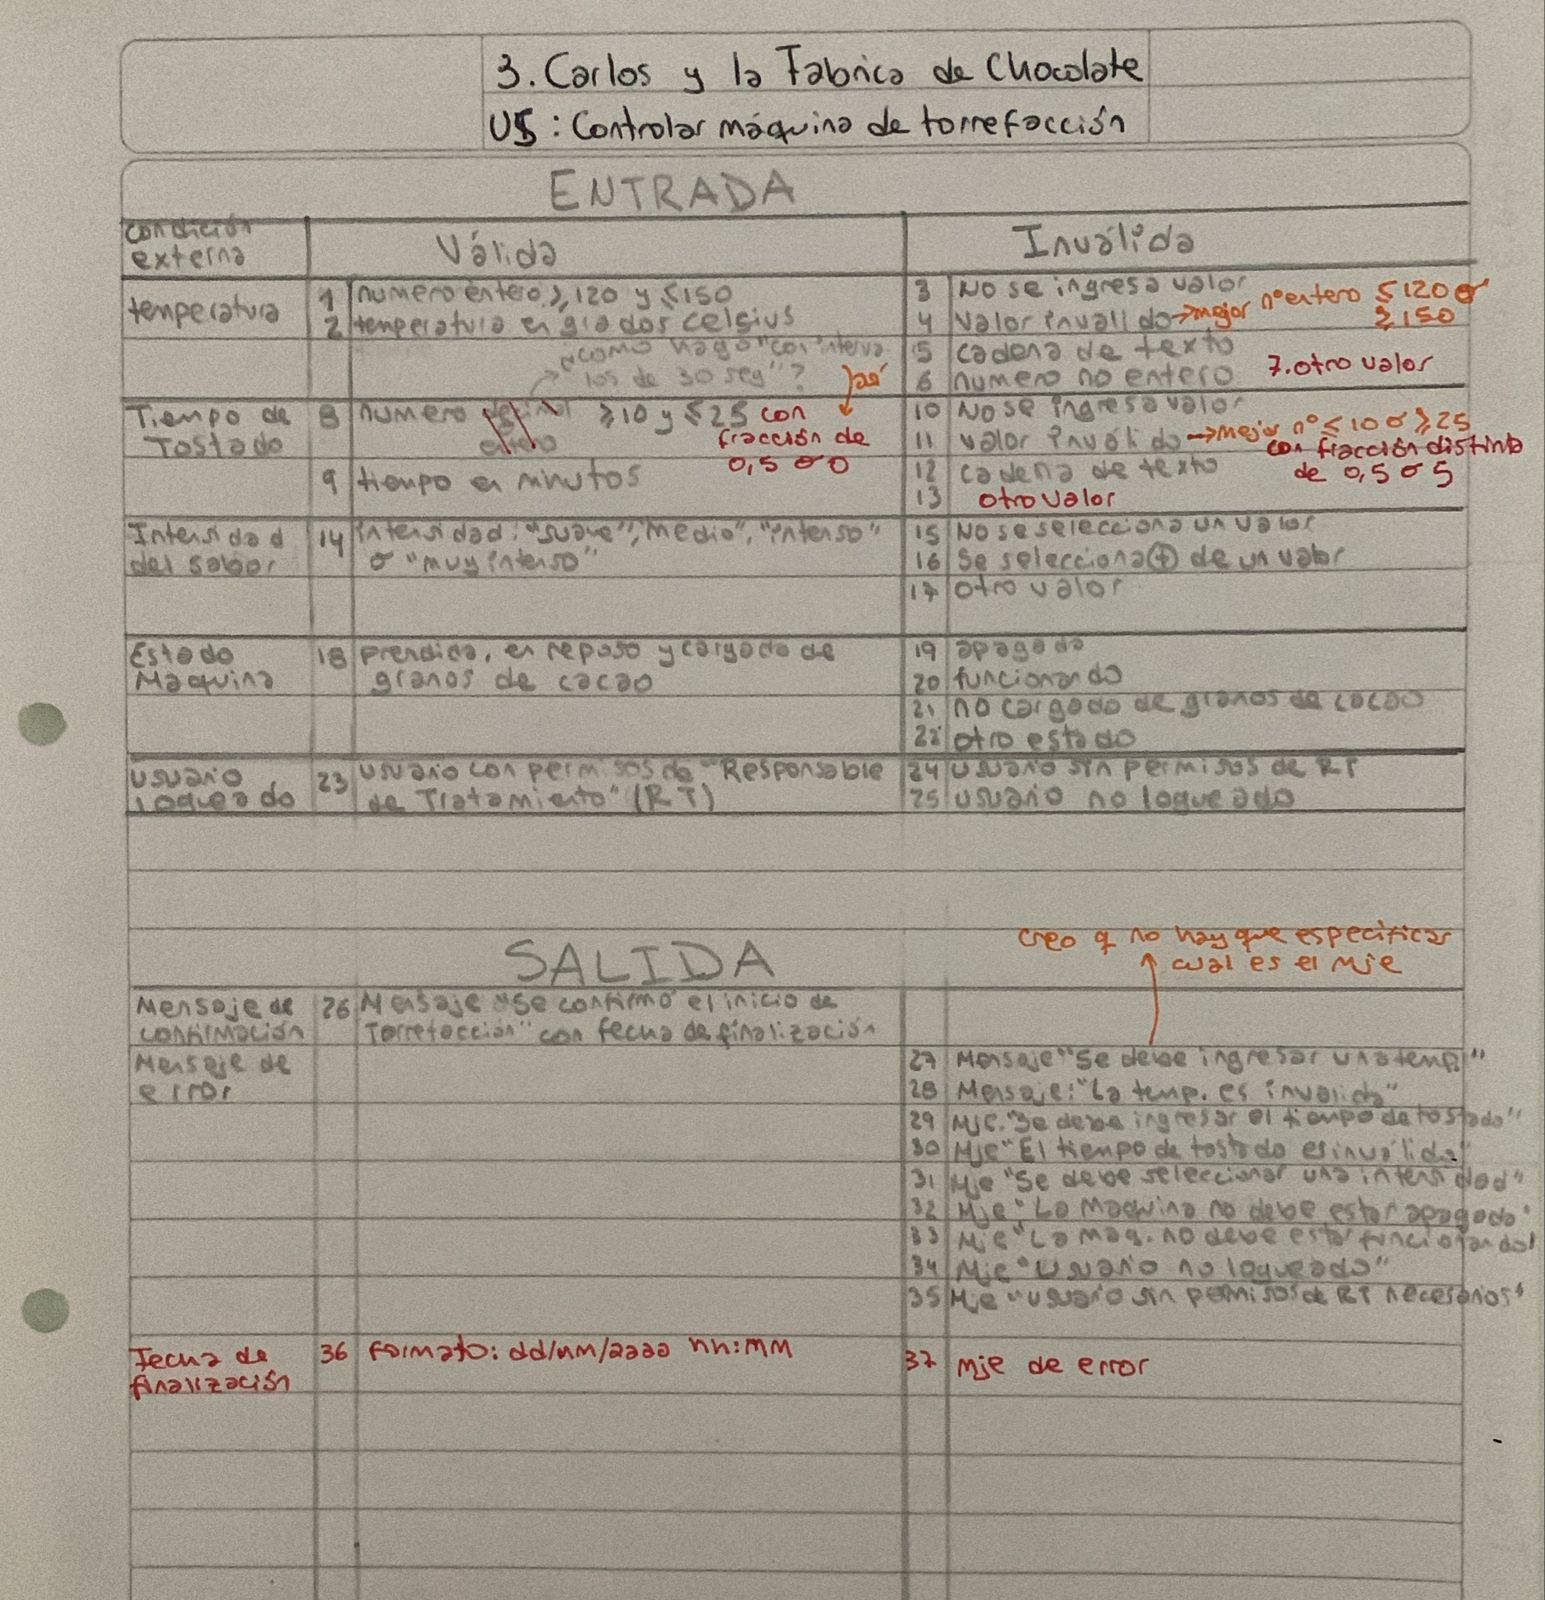 3. Carlos y la Fabrica de Chocolate
US: Controlar máquina de torrefacción
ENTRADA
condición externa
Válida
Inválida
temperatura
1 numero entero ≥ 120 y ≤ 150
2 temperatura en grados celsius
3 No se ingresa valor
4 Valor invalido → mejor nº entero ≤ 120 o ≥ 150
5 cadena de texto
6 numero no entero
7. otro valor
"como hago "con interva
los de 30 seg"?
Tiempo de Tostado
8 numero entero ≥ 10 y ≤ 25 con
fracción de
0,5 o 0
9 tiempo en minutos
10 No se ingresa valor
11 valor inválido → mejor nº ≤ 10 o ≥ 25
con fracción distinto
de 0,5 o 5
12 cadena de texto
13 otro valor
Intensidad del sabor
14 intensidad: "suave", "medio", "intenso"
o "muy intenso"
15 No se selecciona un valor
16 Se selecciona + de un valor
17 otro valor
Estado Maquina
18 prendida, en reposo y cargada de
granos de cacao
19 apagada
20 funcionando
21 no cargado de granos de cacao
22 otro estado
usuario logueado
23 usuario con permisos de "Responsable
de Tratamiento" (RT)
24 usuario sin permisos de RT
25 usuario no logueado
SALIDA
creo q no hay que especificar
cual es el mje
Mensaje de confirmación
26 Mensaje "Se confirmo el inicio de
Torrefacción" con fecha de finalización
Mensaje de error
27 Mensaje "Se debe ingresar una temp."
28 Mensaje: "La temp. es invalida"
29 Mje. "Se debe ingresar el tiempo de tostado"
30 Mje "El tiempo de tostado es inválido"
31 Mje "Se debe seleccionar una intensidad"
32 Mje "La maquina no debe estar apagada"
33 Mje "La maq. no debe estar funcionando"
34 Mje "Usuario no logueado"
35 Mje "usuario sin permisos de RT necesarios"
Fecha de finalización
36 formato: dd/mm/aaaa hh:mm
37 mje de error